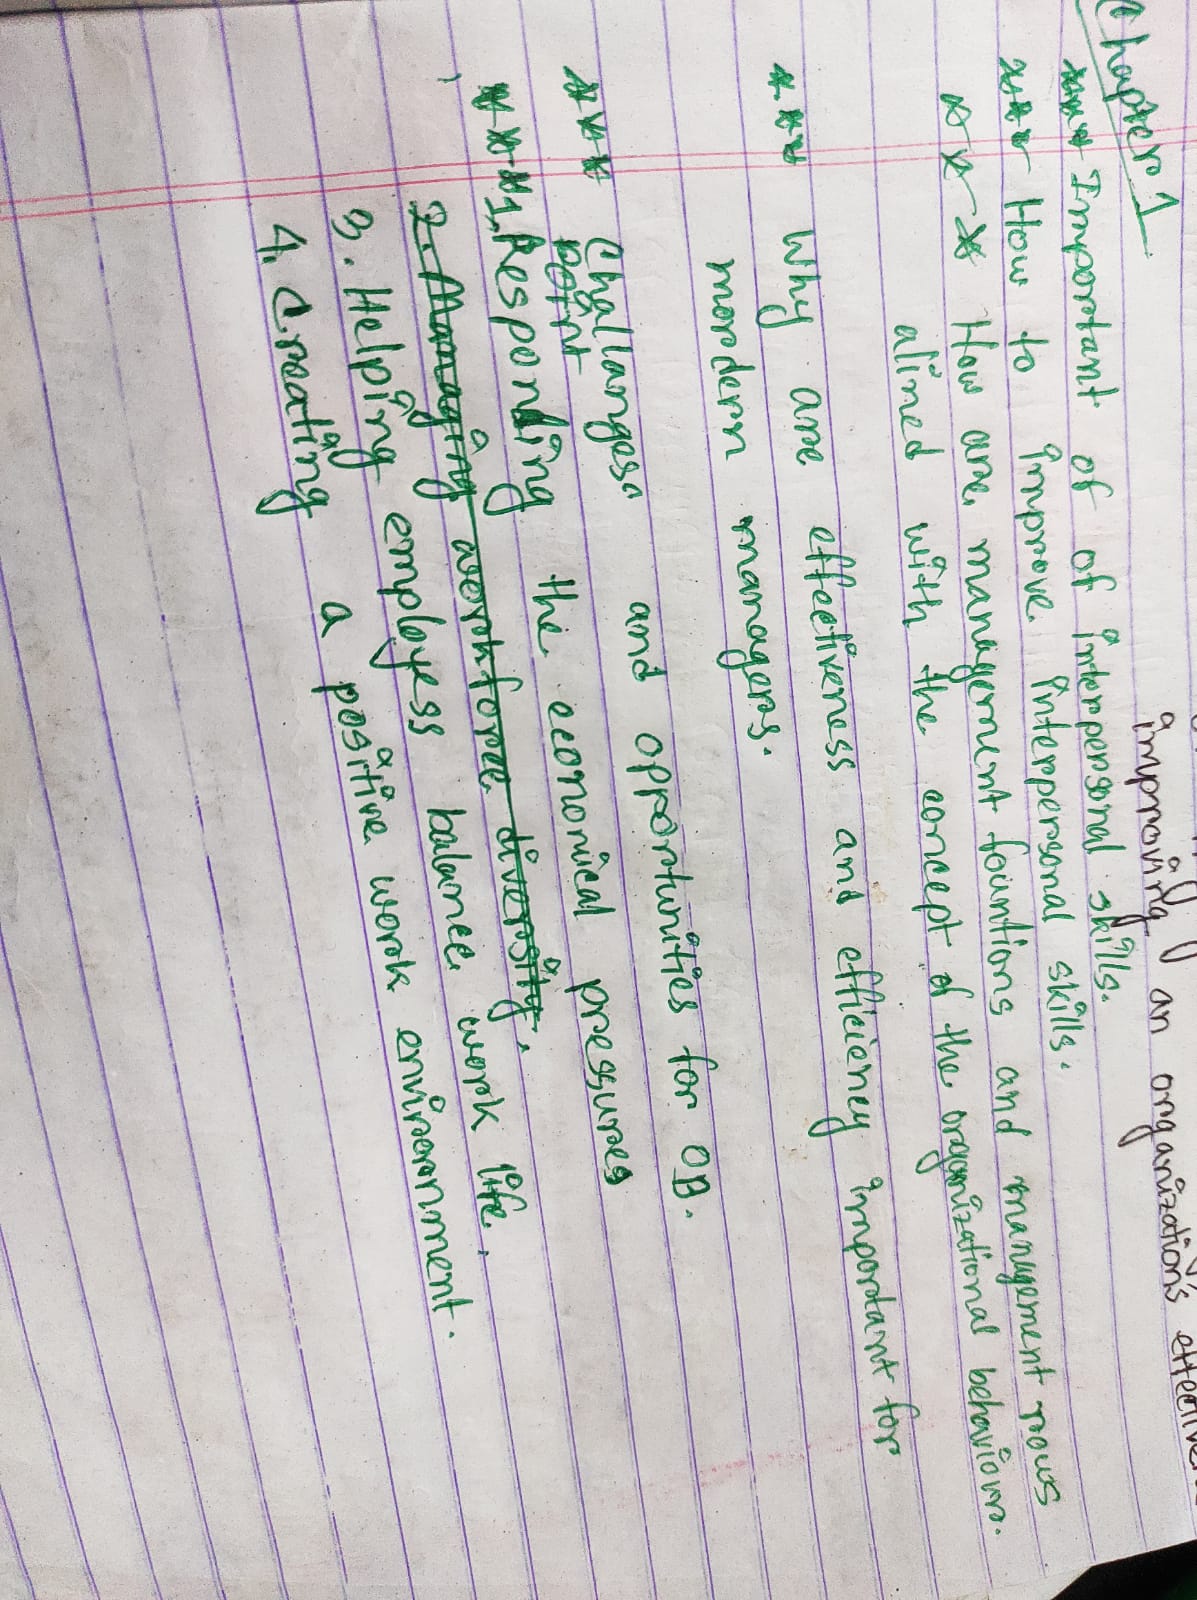 improving an organization's effective
Chapter 1
*** Important of of interpersonal skills.
*** How to improve interpersonal skills.
*** How are management fountions and management rous
alined with the concept of the oraganizational behaviour.
*** Why are effectiveness and efficiency important for
mordern managers.
*** Challanges and opportunities for OB.
point
*** 1. Responding the economical pressures
2. Managing workforce diversity.
3. Helping employess balance work life.
4. Creating a positive work environment.